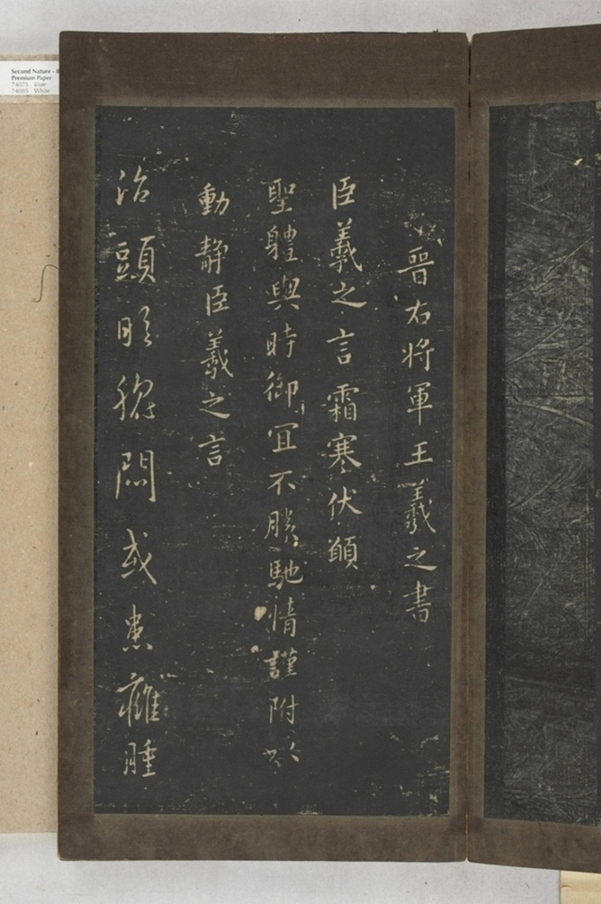 晉右將軍王羲之書
臣羲之言霜寒伏願
聖體與時御宜不勝馳情謹附承
動靜臣羲之言
治頭眩腦悶或患癰腫
Second Nature -
Premium Paper
White